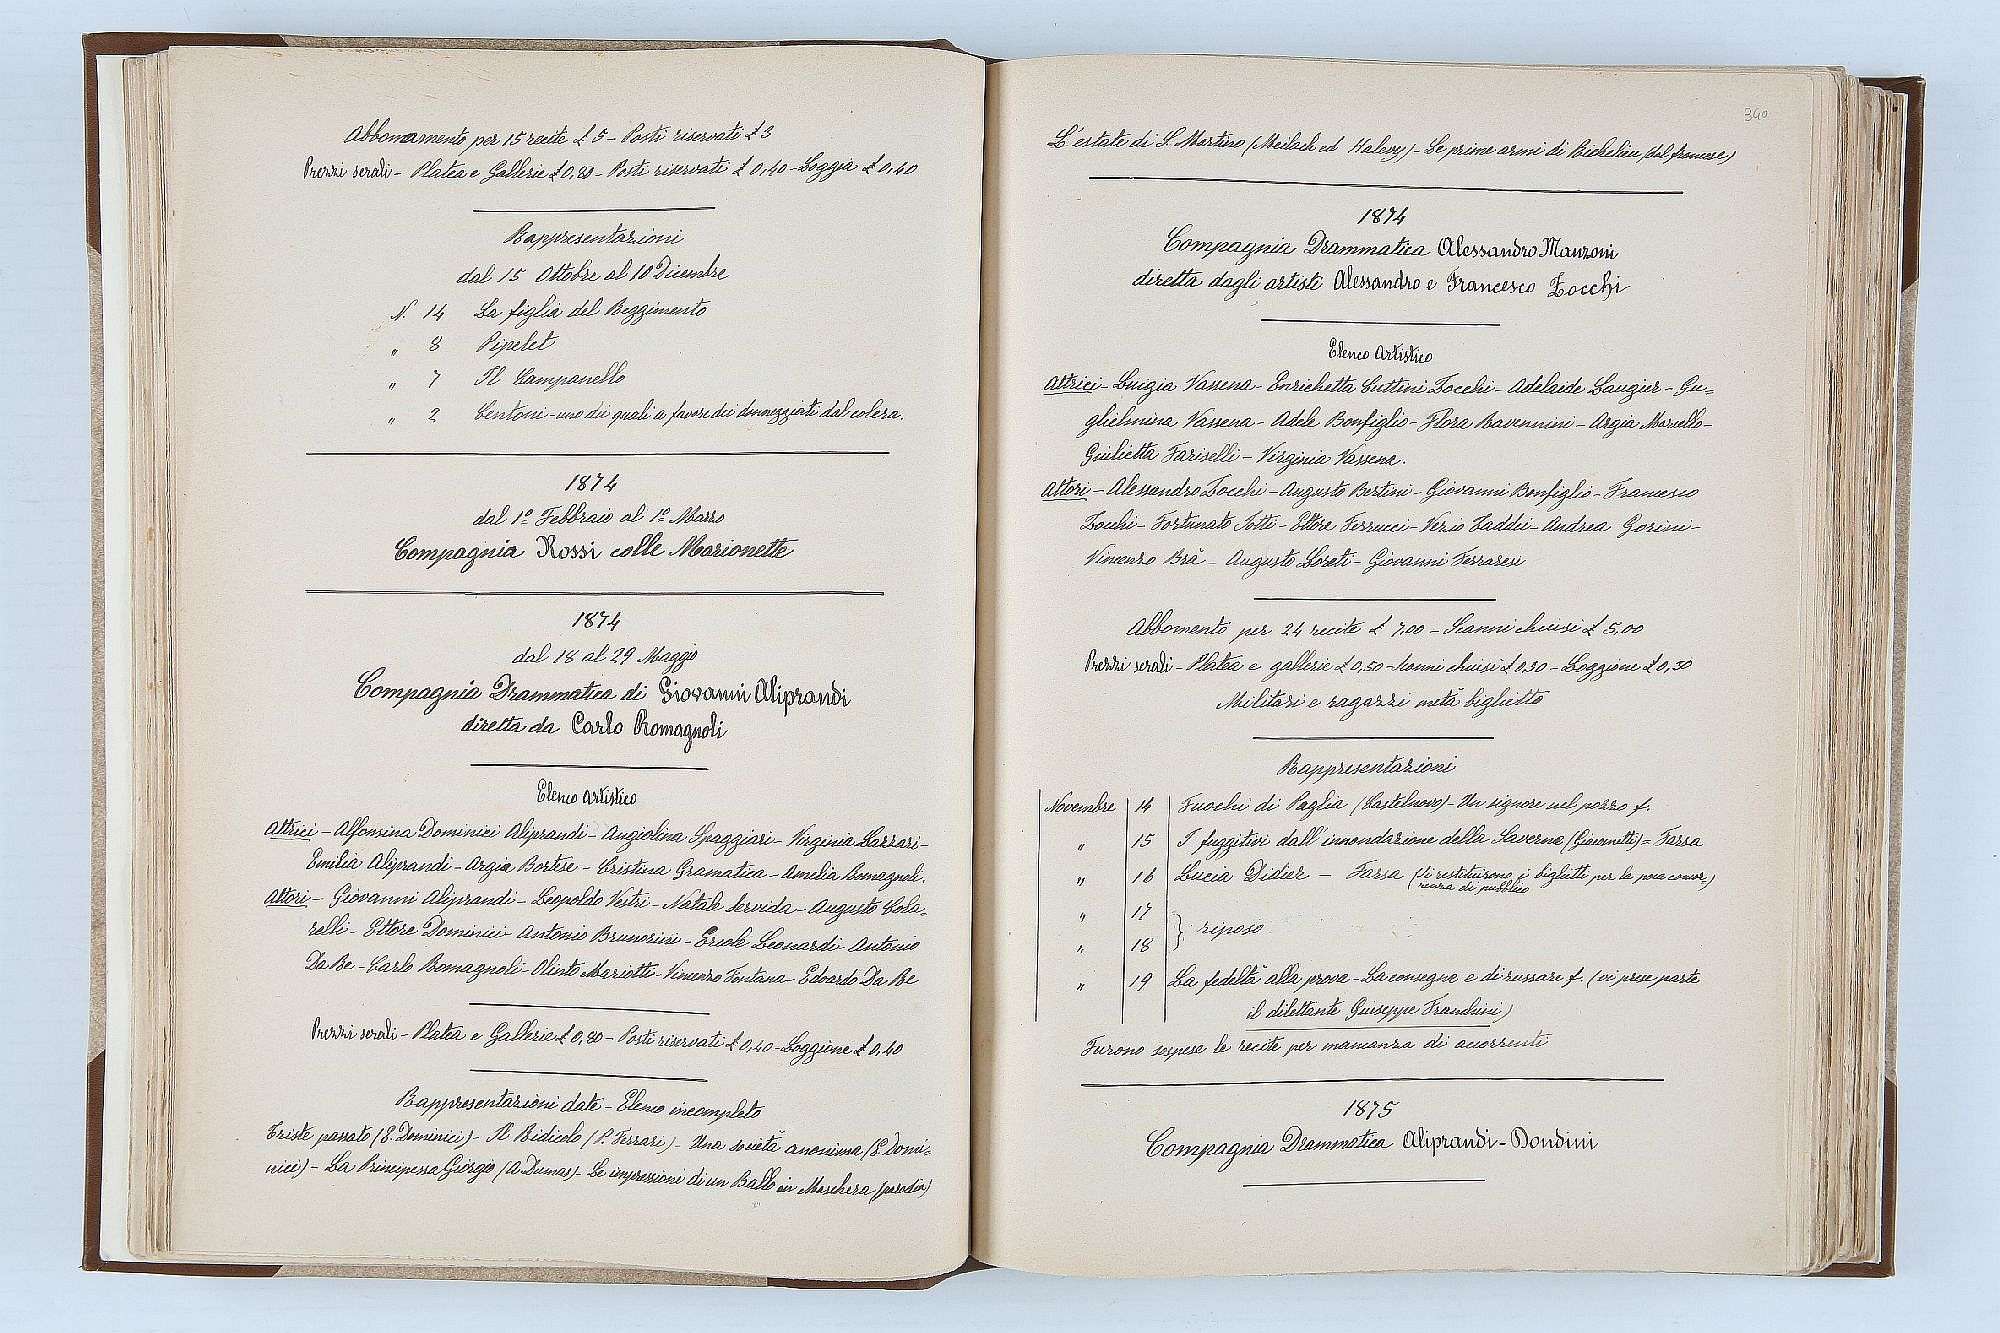 Abbonamento per 15 recite £ 5 - Posti riservati £ 3
Prezzi serali - Platea e Gallerie £ 0,80 - Posti riservati £ 0,40 - Loggia £ 0,40
Rappresentazioni
dal 15 Ottobre al 10 Dicembre
N. 14 La figlia del Reggimento
„ 8 Pipelet
„ 7 Il Campanello
„ 2 Centoni - uno dei quali a favore dei danneggiati dal colera.
1874
dal 1º Febbraio al 1º Marzo
Compagnia Rossi colle Marionette
1874
dal 18 al 29 Maggio
Compagnia Drammatica di Giovanni Aliprandi
diretta da Carlo Romagnoli
Elenco Artistico
Attrici - Alfonsina Dominici Aliprandi - Angiolina Spaggiari - Virginia Lazzari -
Emilia Aliprandi - Argia Bortese - Cristina Gramatica - Amelia Romagnoli.
Attori - Giovanni Aliprandi - Leopoldo Vestri - Natale Servida - Augusto Cola=
relli - Ettore Dominici - Antonio Brunorini - Ercole Leonardi - Antonio
Da Re - Carlo Romagnoli - Olinto Mariotti - Vincenzo Fontana - Edoardo Da Re
Prezzi serali - Platea e Gallerie £ 0,80 - Posti riservati £ 0,40 - Loggione £ 0,40
Rappresentazioni date - Elenco incompleto
Triste passato (E. Dominici) - Il Ridicolo (P. Ferrari) - Una società anonima (E. Domi=
nici) - La Principessa Giorgio (A. Dumas) - Le impressioni di un Ballo in Maschera (parodia)
340
L'estate di S. Martino (Meilach ed Halevy) - Le prime armi di Richelieu (dal francese)
1874
Compagnia Drammatica Alessandro Manzoni
diretta dagli artisti Alessandro e Francesco Zocchi
Elenco Artistico
Attrici - Luigia Vassena - Enrichetta Cuttini Zocchi - Adelaide Laugier - Gu=
glielmina Vassena - Adele Bonfiglio - Flora Ravennini - Argia Marcello -
Giulietta Fariselli - Virginia Vassena.
Attori - Alessandro Zocchi - Augusto Bertini - Giovanni Bonfiglio - Francesco
Zocchi - Fortunato Totti - Ettore Ferrucci - Verio Taddei - Andrea Gorini -
Vincenzo Brà - Augusto Loreti - Giovanni Ferraresi
Abbomento per 24 recite £ 7,00 - Scanni chiusi £ 5,00
Prezzi serali - Platea e gallerie £ 0,50 - scanni chiusi £ 0,30 - Loggione £ 0,30
Militari e ragazzi metà biglietto
Rappresentazioni
Novembre 14 Fuochi di Paglia (Castelnovo) - Un signore nel pozzo f.
„ 15 I fuggitivi dall'innondazione della Saverne (Giacometti) = Farsa
„ 16 Lucia Didier - Farsa (Si restituirono i biglietti per la poca concor=)
renza di pubblico
„ 17
riposo
„ 18
„ 19 La fedeltà alla prova - La consegna e di russare f. (vi prese parte
il dilettante Giuseppe Franchini)
Furono sospese le recite per mancanza di accorrenti
1875
Compagnia Drammatica Aliprandi - Dondini